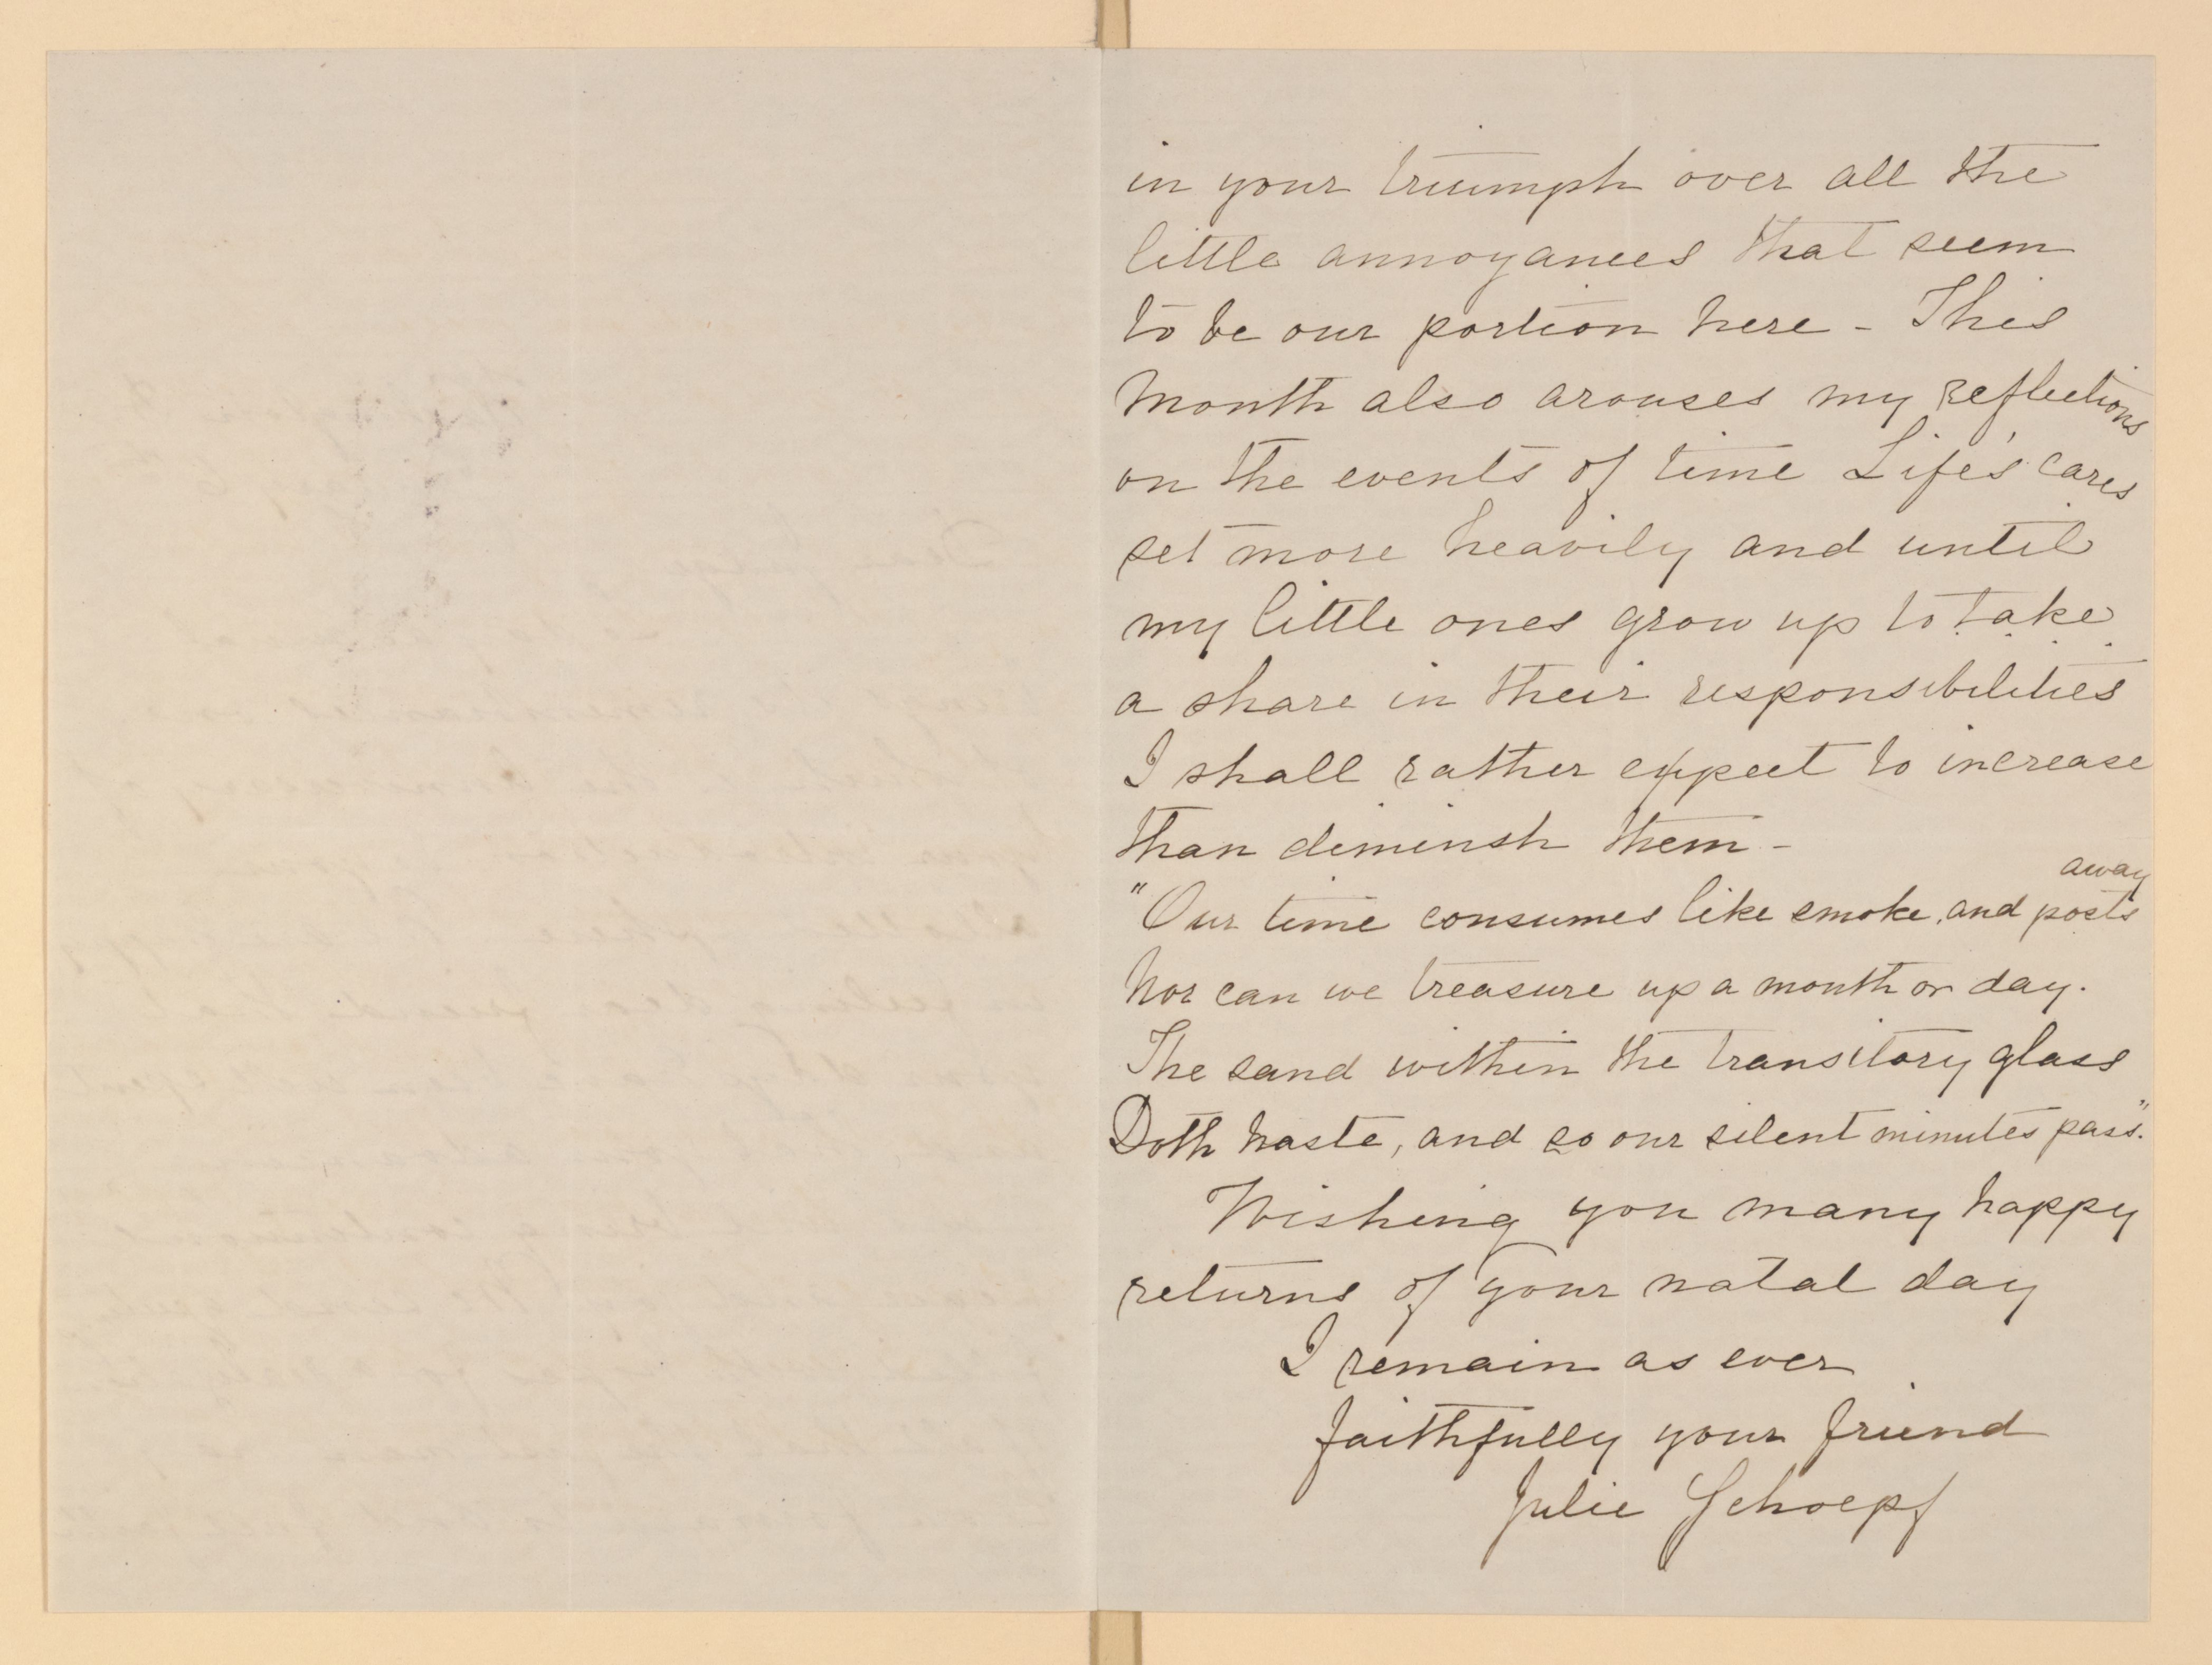 in your triumph over all the
little annoyances that seem
to be our portion here - This
month also arouses my reflections
on the events of time Life's cares
set more heavily and until
my little ones grow up to take
a share in their responsibilities
I shall rather expect to increase
than diminsh them -
"Our time consumes like smoke, and posts away
Nor can we treasure up a month or day.
The sand within the transitory glass
Doth haste, and so our silent minutes pass."
Wishing you many happy
returns of your natal day
I remain as ever
faithfully your friend
Julie Schoepf